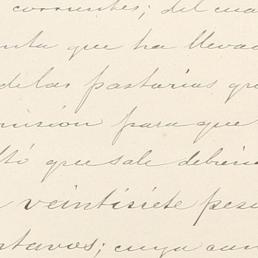 corrientes; del cua
enta que ha llevad
de las pasturias que
misión para que
ltó que sale debien
veintisiete peso
ntavos; cuya can